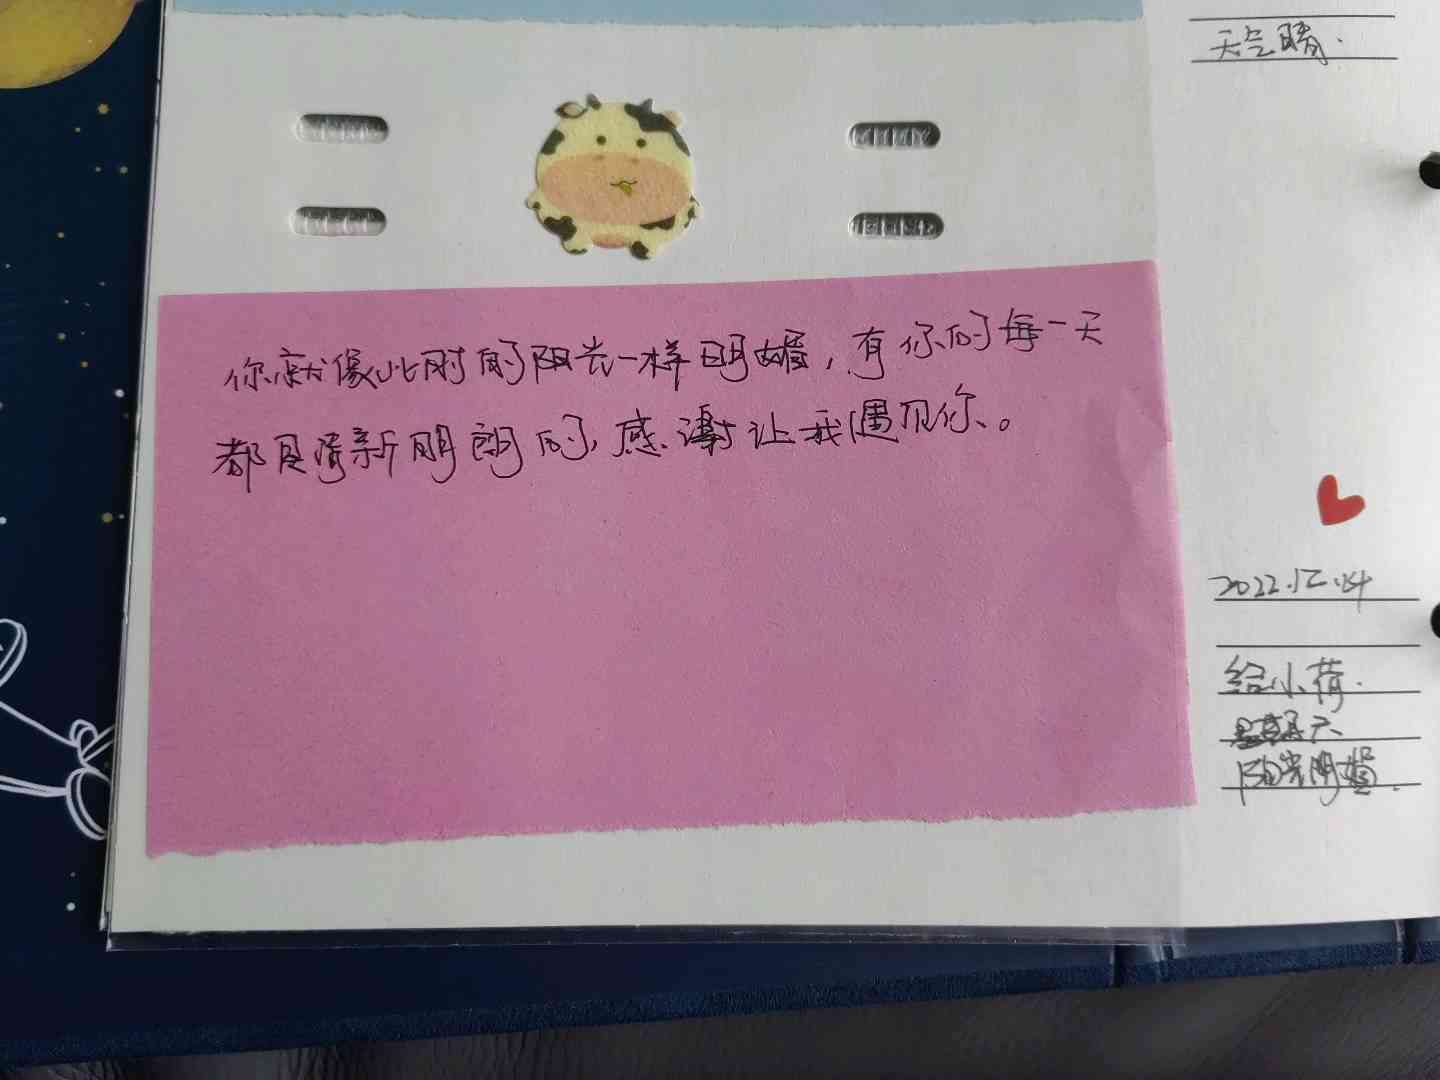 你就像此刻的阳光一样明媚，有你的每一天
都是清新明朗的，感谢让我遇见你。
天空晴.
2022.12.04
给小荷.
星期六
阳光明媚.